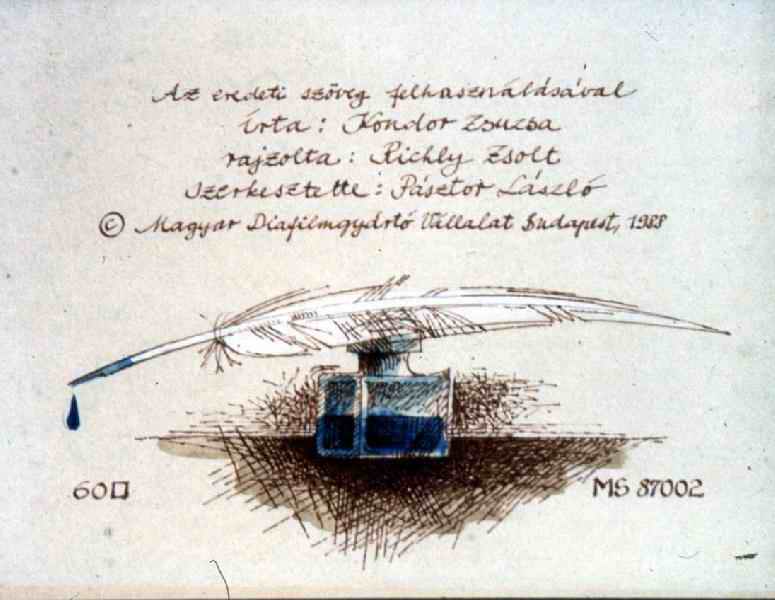 Az eredeti szöveg felhasználásával
írta: Kondor Zsuzsa
rajzolta: Richly Zsolt
szerkesztette: Pásztor László
© Magyar Diafilmgyártó Vállalat Budapest, 1988
60□
MS 87002